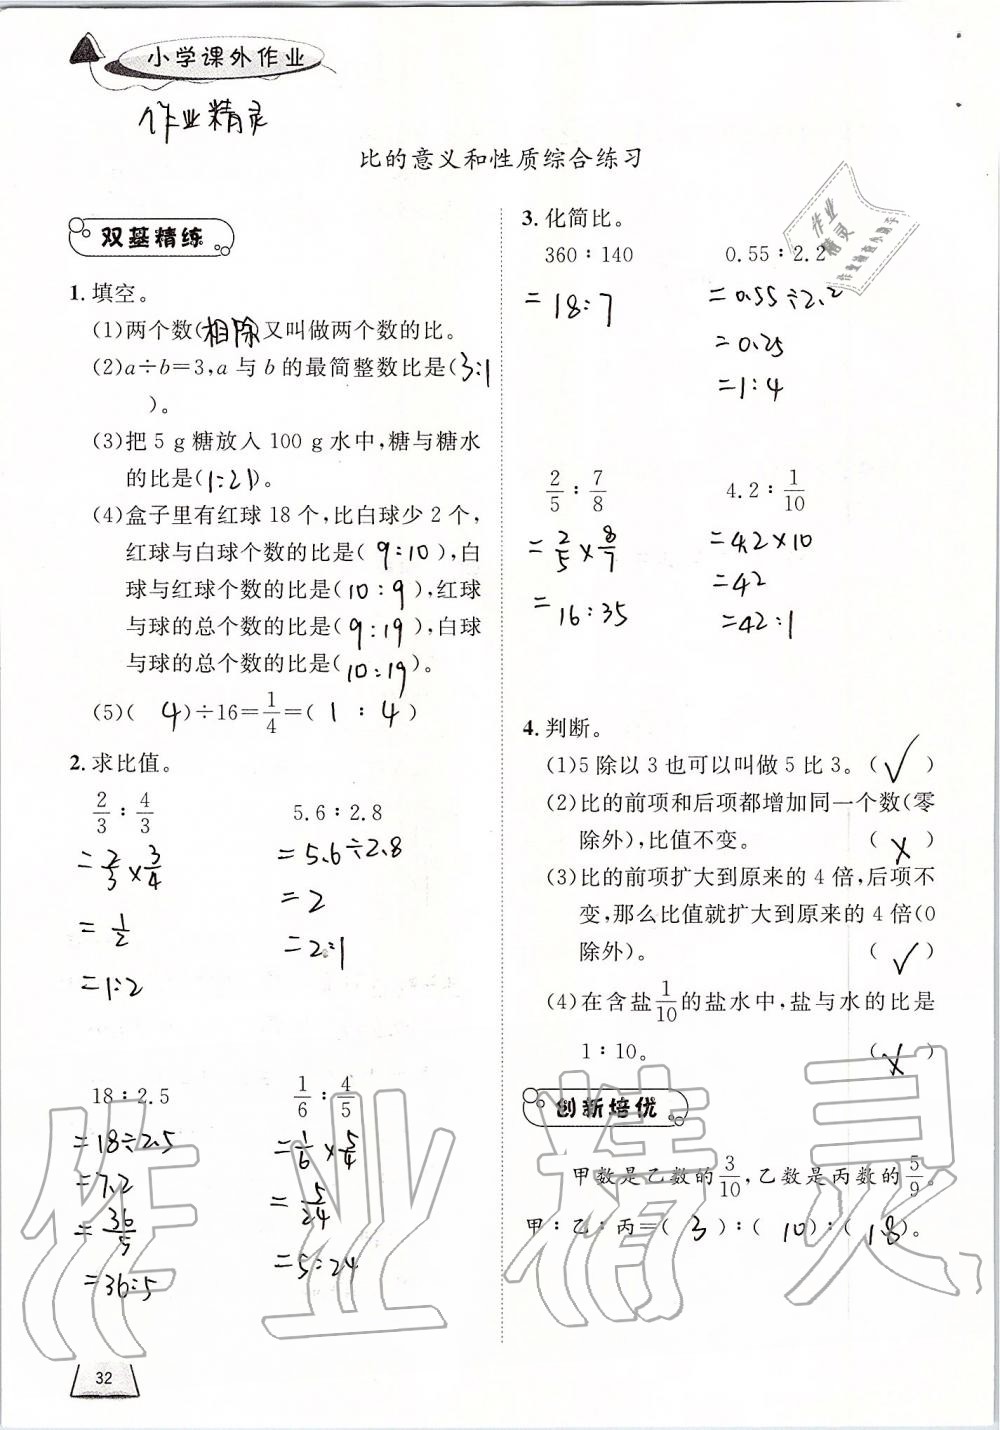 小学课外作业
作业精灵
比的意义和性质综合练习
双基精练
1. 填空。
(1)两个数(相除)又叫做两个数的比。
(2)a÷b=3,a与b的最简整数比是(3:1
)。
(3)把5 g糖放入100 g水中,糖与糖水
的比是(1:21)。
(4)盒子里有红球18个,比白球少2个,
红球与白球个数的比是(9:10),白
球与红球个数的比是(10:9),红球
与球的总个数的比是(9:19),白球
与球的总个数的比是(10:19)。
(5)( 4 )÷16=1/4=( 1 : 4 )
2. 求比值。
2/3:4/3 5.6:2.8
=2/3×3/4 =5.6÷2.8
=1/2 =2
=1:2 =2:1
18:2.5 1/6:4/5
=18÷2.5 =1/6×5/4
=7.2 =5/24
=36/5 =5:24
=36:5
32
3. 化简比。
360:140 0.55:2.2
=18:7 =0.55÷2.2
=0.25
=1:4
2/5:7/8 4.2:1/10
=2/5×8/7 =4.2×10
=16:35 =42
=42:1
4. 判断。
(1)5除以3也可以叫做5比3。(√)
(2)比的前项和后项都增加同一个数(零
除外),比值不变。 (×)
(3)比的前项扩大到原来的4倍,后项不
变,那么比值就扩大到原来的4倍(0
除外)。 (√)
(4)在含盐1/10的盐水中,盐与水的比是
1:10。 (×)
创新培优
甲数是乙数的3/10,乙数是丙数的5/9。
甲:乙:丙=( 3 ):( 10 ):( 18 )。
作业精灵
作业精灵